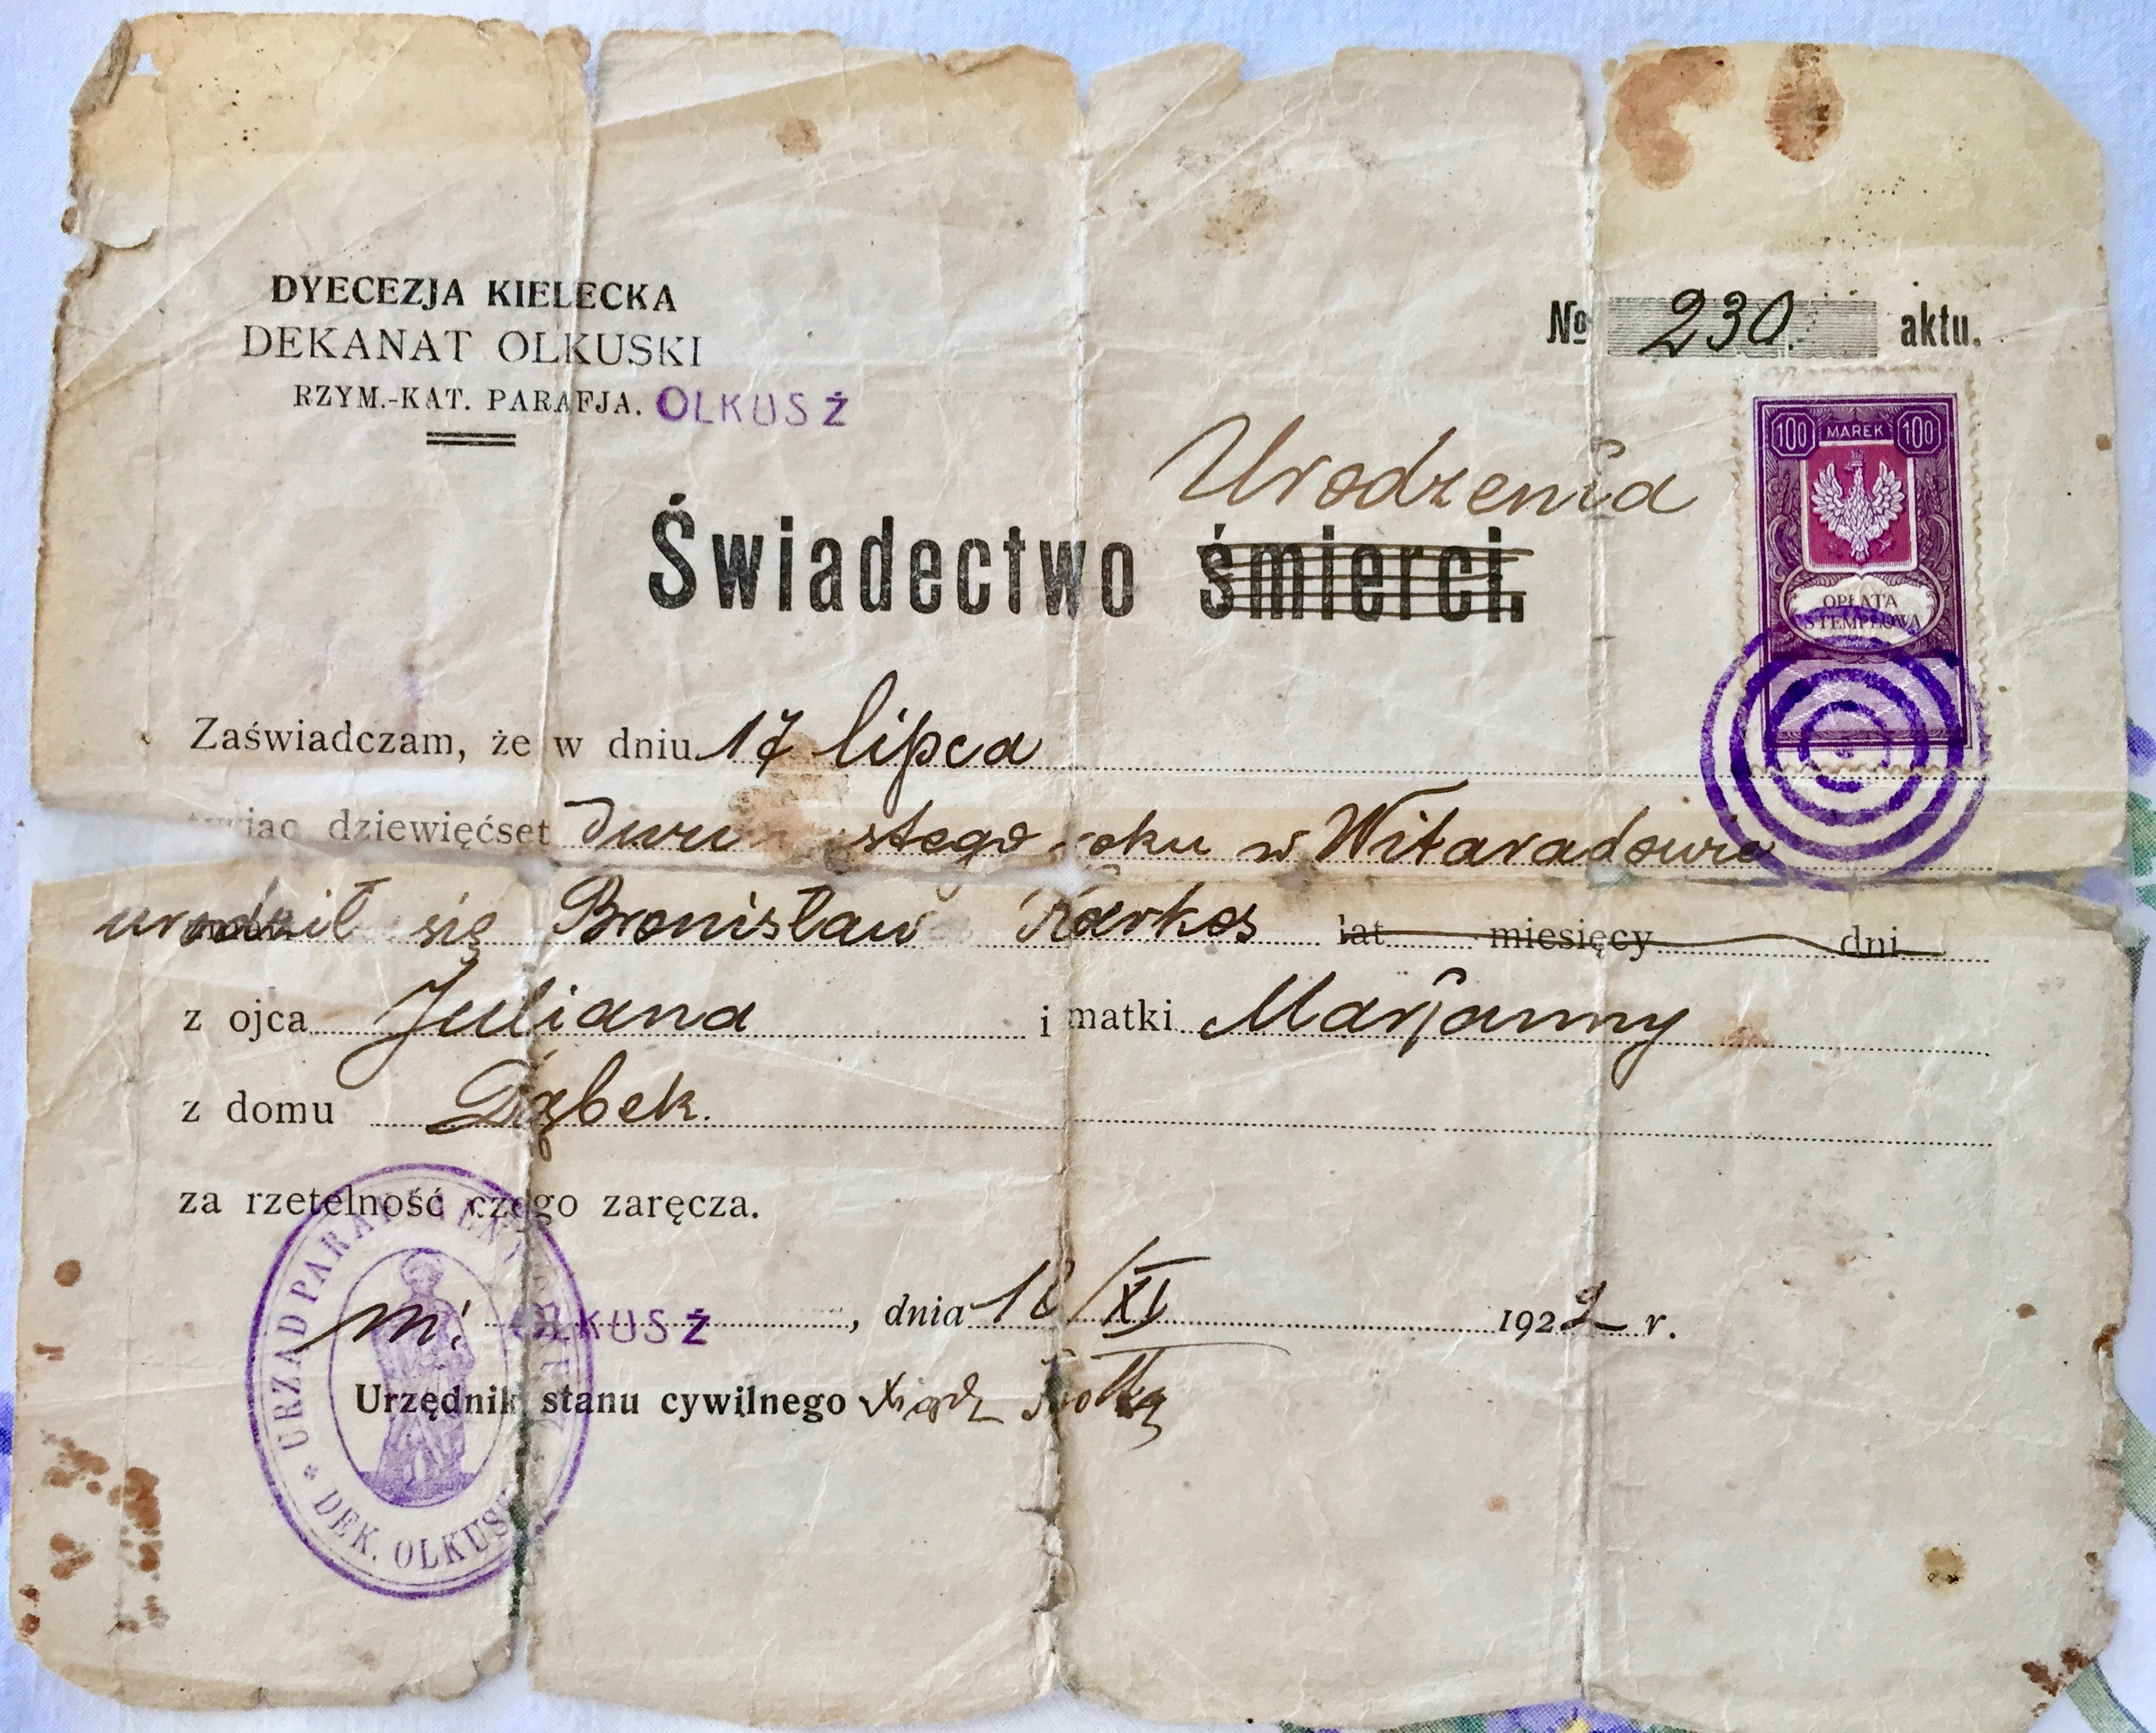 DYECEZJA KIELECKA
DEKANAT OLKUSKI
RZYM.-KAT. PARAFJA. OLKUSZ
№ 230. aktu.
100 MAREK 100
OPŁATA
STEMPLOWA
Urodzenia
Świadectwo śmierci.
Zaświadczam, że w dniu 17 lipca
dziewięćset stego roku w Witaradowie
urodził się Bronisław Karkos lat miesięcy dni
z ojca Juliana i matki Marjanny
z domu Dąbek.
za rzetelność czego zaręcza.
m. OLKUSZ, dnia 18/XI 1922 r.
Urzędnik stanu cywilnego
URZĄD PARAF
DEK. OLKUSK